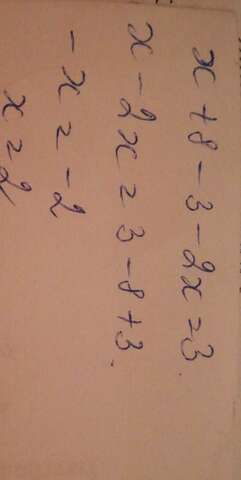 x + 8 - 3 - 2x = 3.
x - 2x = 3 - 8 + 3.
- x = - 2
x = 2